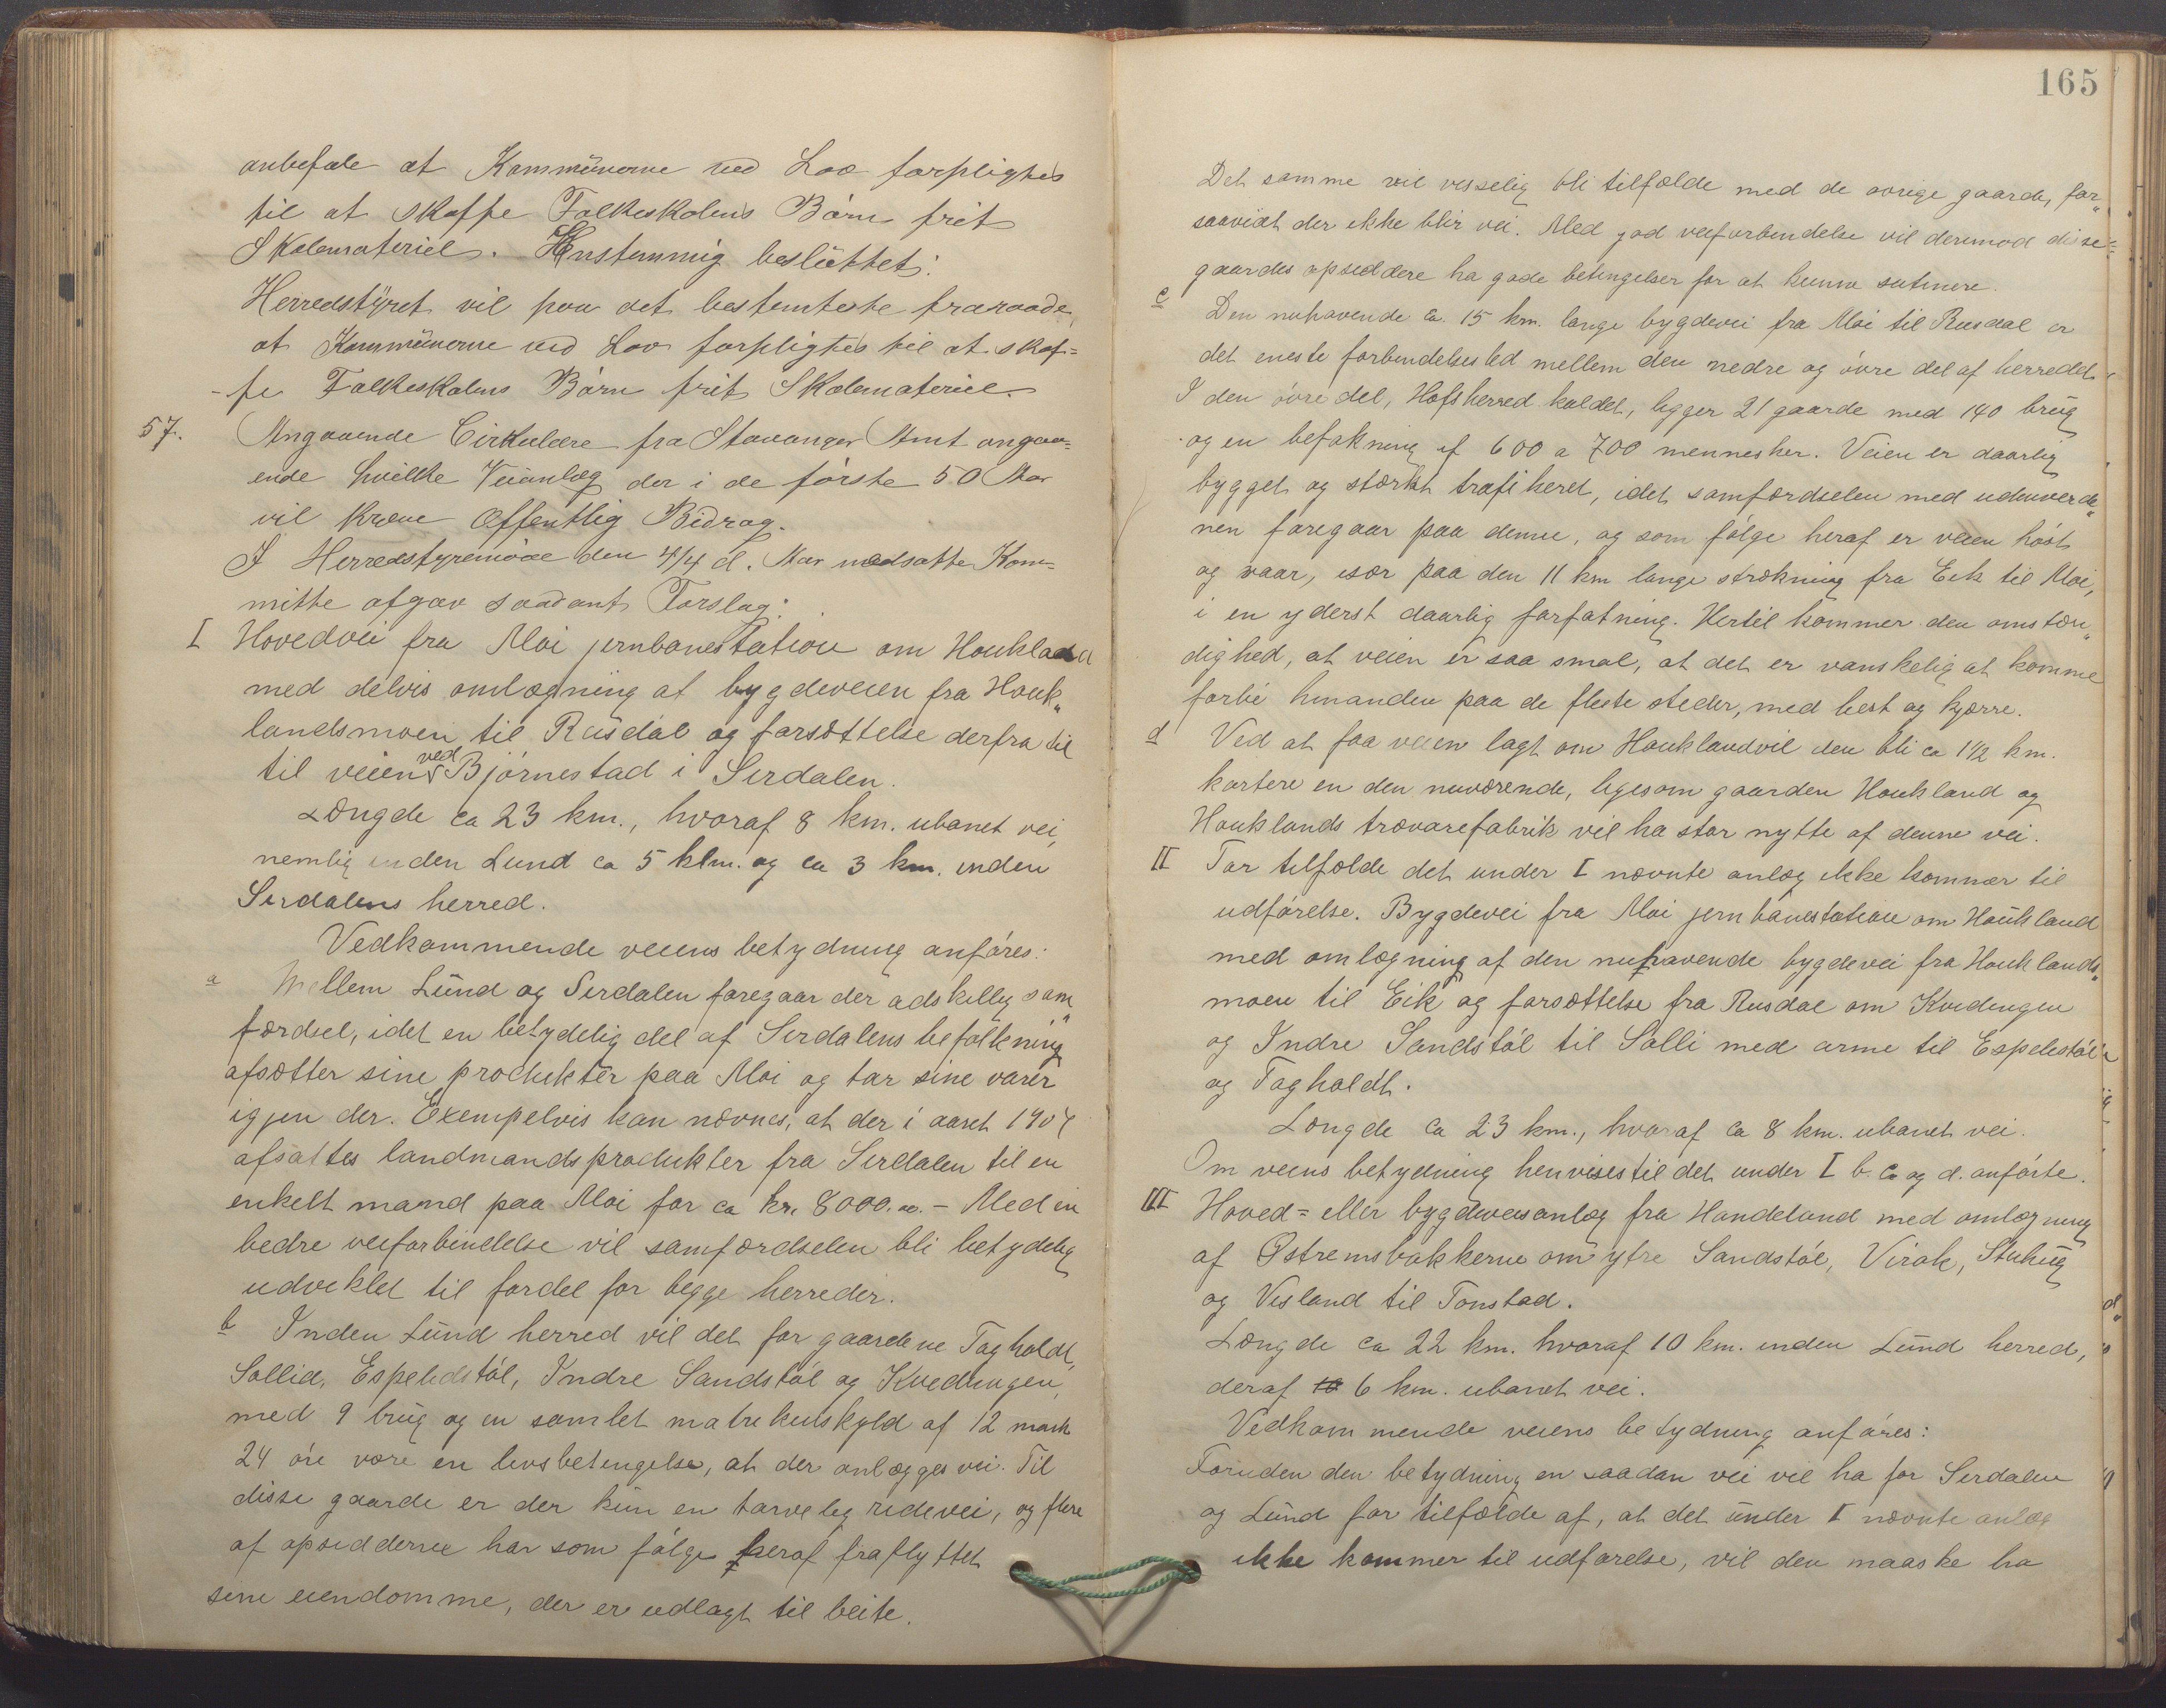 anbefale at Kommünerne ved Lov forpligtes
til at skaffe Folkeskolens Börn frit
Skolemateriel. Enstemmig beslüttet:
Herredstyret vil paa det bestemteste fraraade,
at Kommünerne ved Lov forpligtes til at skaf=
-fe Folkeskolens Börn frit Skolemateriel.
57. Angaaende Cirkulære fra Stavanger Amt angaa=
ende hvilke Veianlæg der i de förste 50 Aar
vil kræve Offentlig Bidrag.
I Herredstyremöde den 4/4 d. Aar nedsatte Kom=
mitte afgav saadant Forslag:
I Hovedvei fra Moi jernbanestation om Houkland
med delvis omlægning af bygdeveien fra Houk„
landsmoen til Rüsdal og forsættelse derfra til
til veien ved Björnestad i Sirdalen.
Længde ca 23 km., hvoraf 8 km. ubanet vei,
nemlig inden Lund ca 5 klm. og ca 3 km. inden
Sirdalens herred.
Vedkommende veiens betydning anföres:
a Mellem Lünd og Sirdalen foregaar der adskillig sam„
færdsel, idet en betydelig del af Sirdalens befolkning
afsætter sine produkter paa Moi og tar sine varer
igjen der. Exempelvis kan nævnes, at der i aaret 1904
afsattes landmandsprodukter fra Sirdalen til en
enkelt mand paa Moi for ca kr. 8000.00. - Med en
bedre veiforbindelse vil samfærdselen bli betydelig
udviklet til fordel for begge herreder.
b Inden Lünd herred vil det for gaardene Tagholdt,
Sollid, Espelidstöl, Indre Sandstöl og Kvedingen,
med 9 brüg og en samlet matrikulskyld af 12 mark
24 öre være en livsbetingelse, at der anlægges vei. Til
disse gaarde er der kün en tarvelig ridevei, og flere
af opsidderne har som fölge heraf fraflyttet
sine eiendomme, der er udlagt til beite.
165
Det samme vil visselig bli tilfælde med de övrige gaarde, for„
saavidt der ikke blir vei. Med god veiforbindelse vil derimod disse=
gaardes opsiddere ha gode betingelser for at kunne sutinere.
c Den nuhavende ca. 15 km. lange bygdevei fra Moi til Rusdal er
det eneste forbindelsesled mellem den nedre og övre del af herredet.
I den övre del, Hofsherred kaldet, ligger 21 gaarde med 140 brüg
og en befokning af 600 a 700 mennesker. Veien er daarlig
bygget og stærkt trafikeret, idet samfærdselen med udenverde„
nen foregaar paa denne, og som fölge heraf er veien höst
og vaar, især paa den 11 km lange strækning fra Eik til Moi,
i en yderst daarlig forfatning. Hertil kommer den omstæn„
dighed, at veien er saa smal, at det er vanskelig at komme
forbi hinanden paa de fleste steder, med hest og kjærre.
d Ved at faa veien lagt om Houkland vil den bli ca 1 1/2 km.
kortere en den nuværende, ligesom gaarden Houkland og
Houklands trævarefabrik vil ha stor nytte af denne vei.
II For tilfælde det under I nævnte anlæg ikke kommer til
udförelse. Bygdevei fra Moi jernbanestation om Houkland
med omlægning af den nuhavende bygdevei fra Houklands„
moen til Eik og forsættelse fra Rusdal om Kvedingen
og Indre Sandstöl til Solli med arme til Espelidstöl
og Tagholdt.
Længde ca 23 km., hvoraf ca 8 km. ubanet vei.
Om veiens betydning henvises til det under I b. c og d. anförte.
III Hoved= eller bygdeveisanlæg fra Handeland med omlægning
af Østremsbakkerne om ytre Sandstöl, Virak, Stuhüg
og Visland til Tonstad.
Længde ca 22 km. hvoraf 10 km. inden Lünd herred,
deraf 10 6 km. ubanet vei.
Vedkommende veiens betydning anföres:
Foruden den betydning en saadan vei vil ha for Sirdalen
og Lünd for tilfælde af, at det ünder I nævnte anlæg
ikke kommer til udförelse, vil den maaske ha